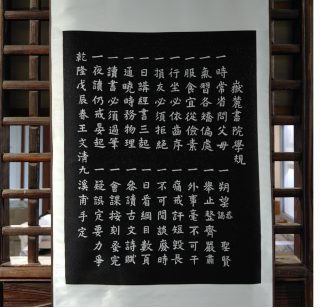 嶽麓書院學規
一時常省問父母 一朔望恭謁 聖賢
一氣習各矯偏處 一舉止整齊嚴肅
一服食宜從儉素 一外事毫不可干
一行坐必依齒序 一痛戒訐短毀長
一損友必須拒絕 一不可閒談廢時
一日講經書三起 一日看綱目數頁
一通曉時務物理 一參讀古文詩賦
一讀書必須過筆 一會課按刻蚤完
一夜讀仍戒晏起 一疑誤定要力爭
乾隆戊辰春王文清九溪甫手定